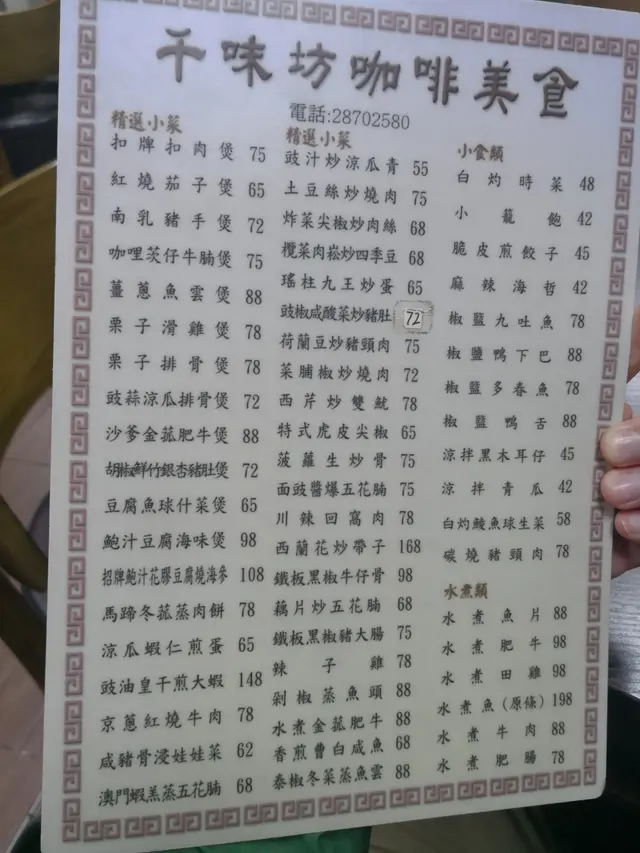 千味坊咖啡美食
電話:28702580
精選小菜
扣牌扣肉煲 75
紅燒茄子煲 65
南乳豬手煲 72
咖哩茨仔牛腩煲 75
薑蔥魚雲煲 88
栗子滑雞煲 78
栗子排骨煲 78
豉蒜涼瓜排骨煲 72
沙爹金菰肥牛煲 88
胡椒鮮竹銀杏豬肚煲 72
豆腐魚球什菜煲 65
鮑汁豆腐海味煲 98
招牌鮑汁花膠豆腐燒海參 108
馬蹄冬菰蒸肉餅 78
涼瓜蝦仁煎蛋 65
豉油皇干煎大蝦 148
京蔥紅燒牛肉 78
咸豬骨浸娃娃菜 62
澳門蝦羔蒸五花腩 68
精選小菜
豉汁炒涼瓜青 55
土豆絲炒燒肉 75
炸菜尖椒炒肉絲 68
欖菜肉崧炒四季豆 68
瑤柱九王炒蛋 65
豉椒咸酸菜炒豬肚 72
荷蘭豆炒豬頸肉 75
菜脯椒炒燒肉 72
西芹炒雙魷 78
特式虎皮尖椒 65
菠蘿生炒骨 75
面豉醬爆五花腩 75
川辣回窩肉 78
西蘭花炒帶子 168
鐵板黑椒牛仔骨 98
藕片炒五花腩 68
鐵板黑椒豬大腸 75
辣子雞 78
剁椒蒸魚頭 88
水煮金菰肥牛 88
香煎曹白咸魚 68
泰椒冬菜蒸魚雲 88
小食類
白灼時菜 48
小籠飽 42
脆皮煎餃子 45
麻辣海哲 42
椒鹽九吐魚 78
椒鹽鴨下巴 88
椒鹽多春魚 78
椒鹽鴨舌 88
涼拌黑木耳仔 45
涼拌青瓜 42
白灼鯪魚球生菜 58
碳燒豬頸肉 78
水煮類
水煮魚片 88
水煮肥牛 98
水煮田雞 98
水煮魚(原條) 198
水煮牛肉 88
水煮肥腸 78